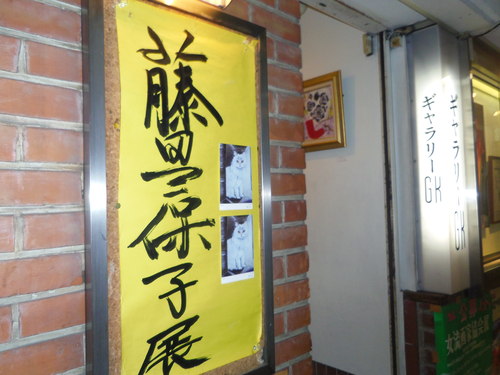 藤田三保子展
ギャラリーGK
ギャラリーGK